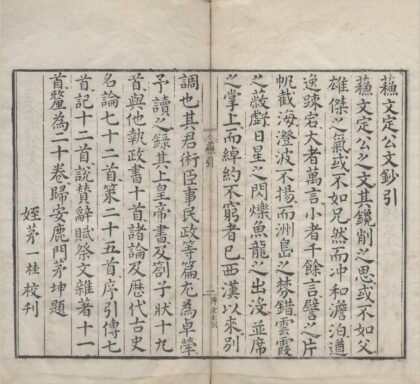 蘇文定公文鈔引
蘇文定公之文其鑱削之思或不如父
雄傑之氣或不如兄然而冲和澹泊遒
逸踈宕大者萬言小者千餘言譬之片
帆截海澄波不揚而洲島之棼錯雲霞
之蔽虧日星之閃爍魚龍之出沒並席
之掌上而綽約不窮者已西漢以來別
引
調也其君術臣事民政等篇尤為卓犖
予讀之錄其上皇帝書及劄子狀十九
首與他執政書十首諸論及歷代古史
名論七十二首策二十五首序引傳七
首記十二首說賛辭賦祭文雜著十一
首釐為二十卷歸安鹿門茅坤題
姪茅一桂 校刊